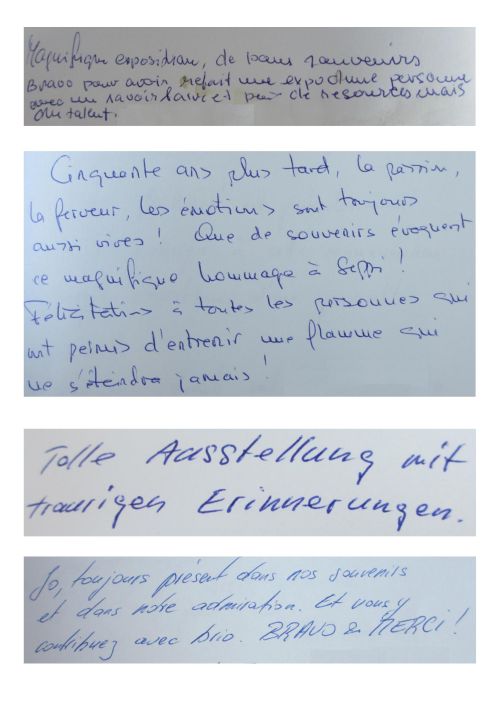 Magnifique exposition, de bons souvenirs
Bravo pour avoir refait une expo d'une personne
avec un savoir faire et peu de resources mais
du talent.
Cinquante ans plus tard, la passion,
la ferveur, les émotions sont toujours
aussi vives! Que de souvenirs évoquent
ce magnifique hommage à Seppi!
Félicitations à toutes les personnes qui
ont permis d'entretenir une flamme qui
ne s'éteindra jamais!
Tolle Ausstellung mit
traurigen Erinnerungen.
Jo, toujours présent dans nos souvenirs
et dans notre admiration. Et vous y
contribuez avec brio. BRAVO & MERCI!